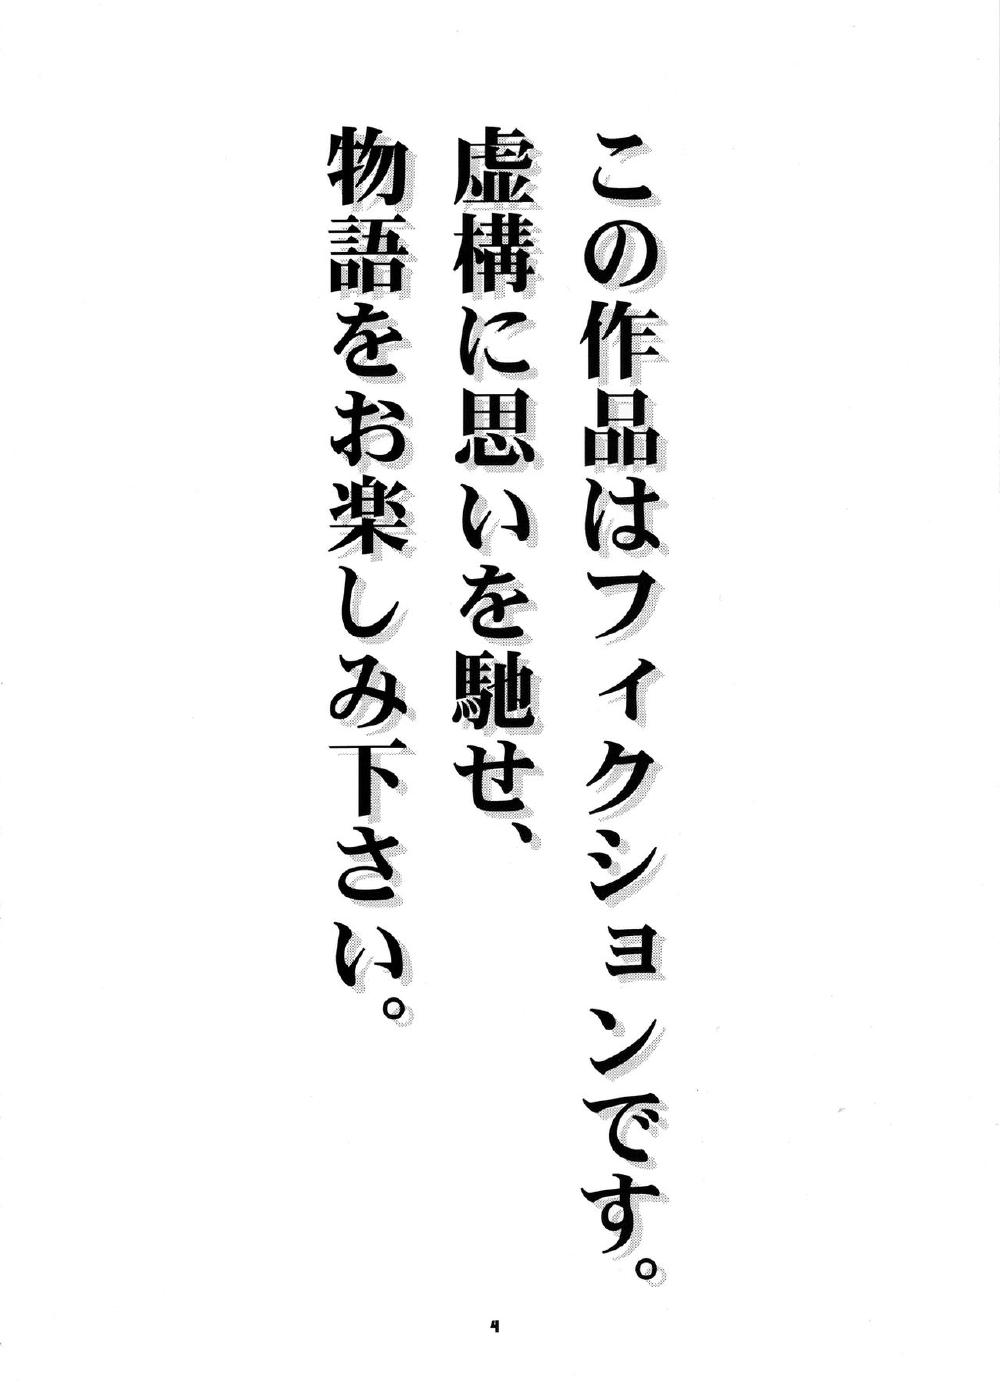 この作品はフィクションです。
虚構に思いを馳せ、
物語をお楽しみ下さい。
4